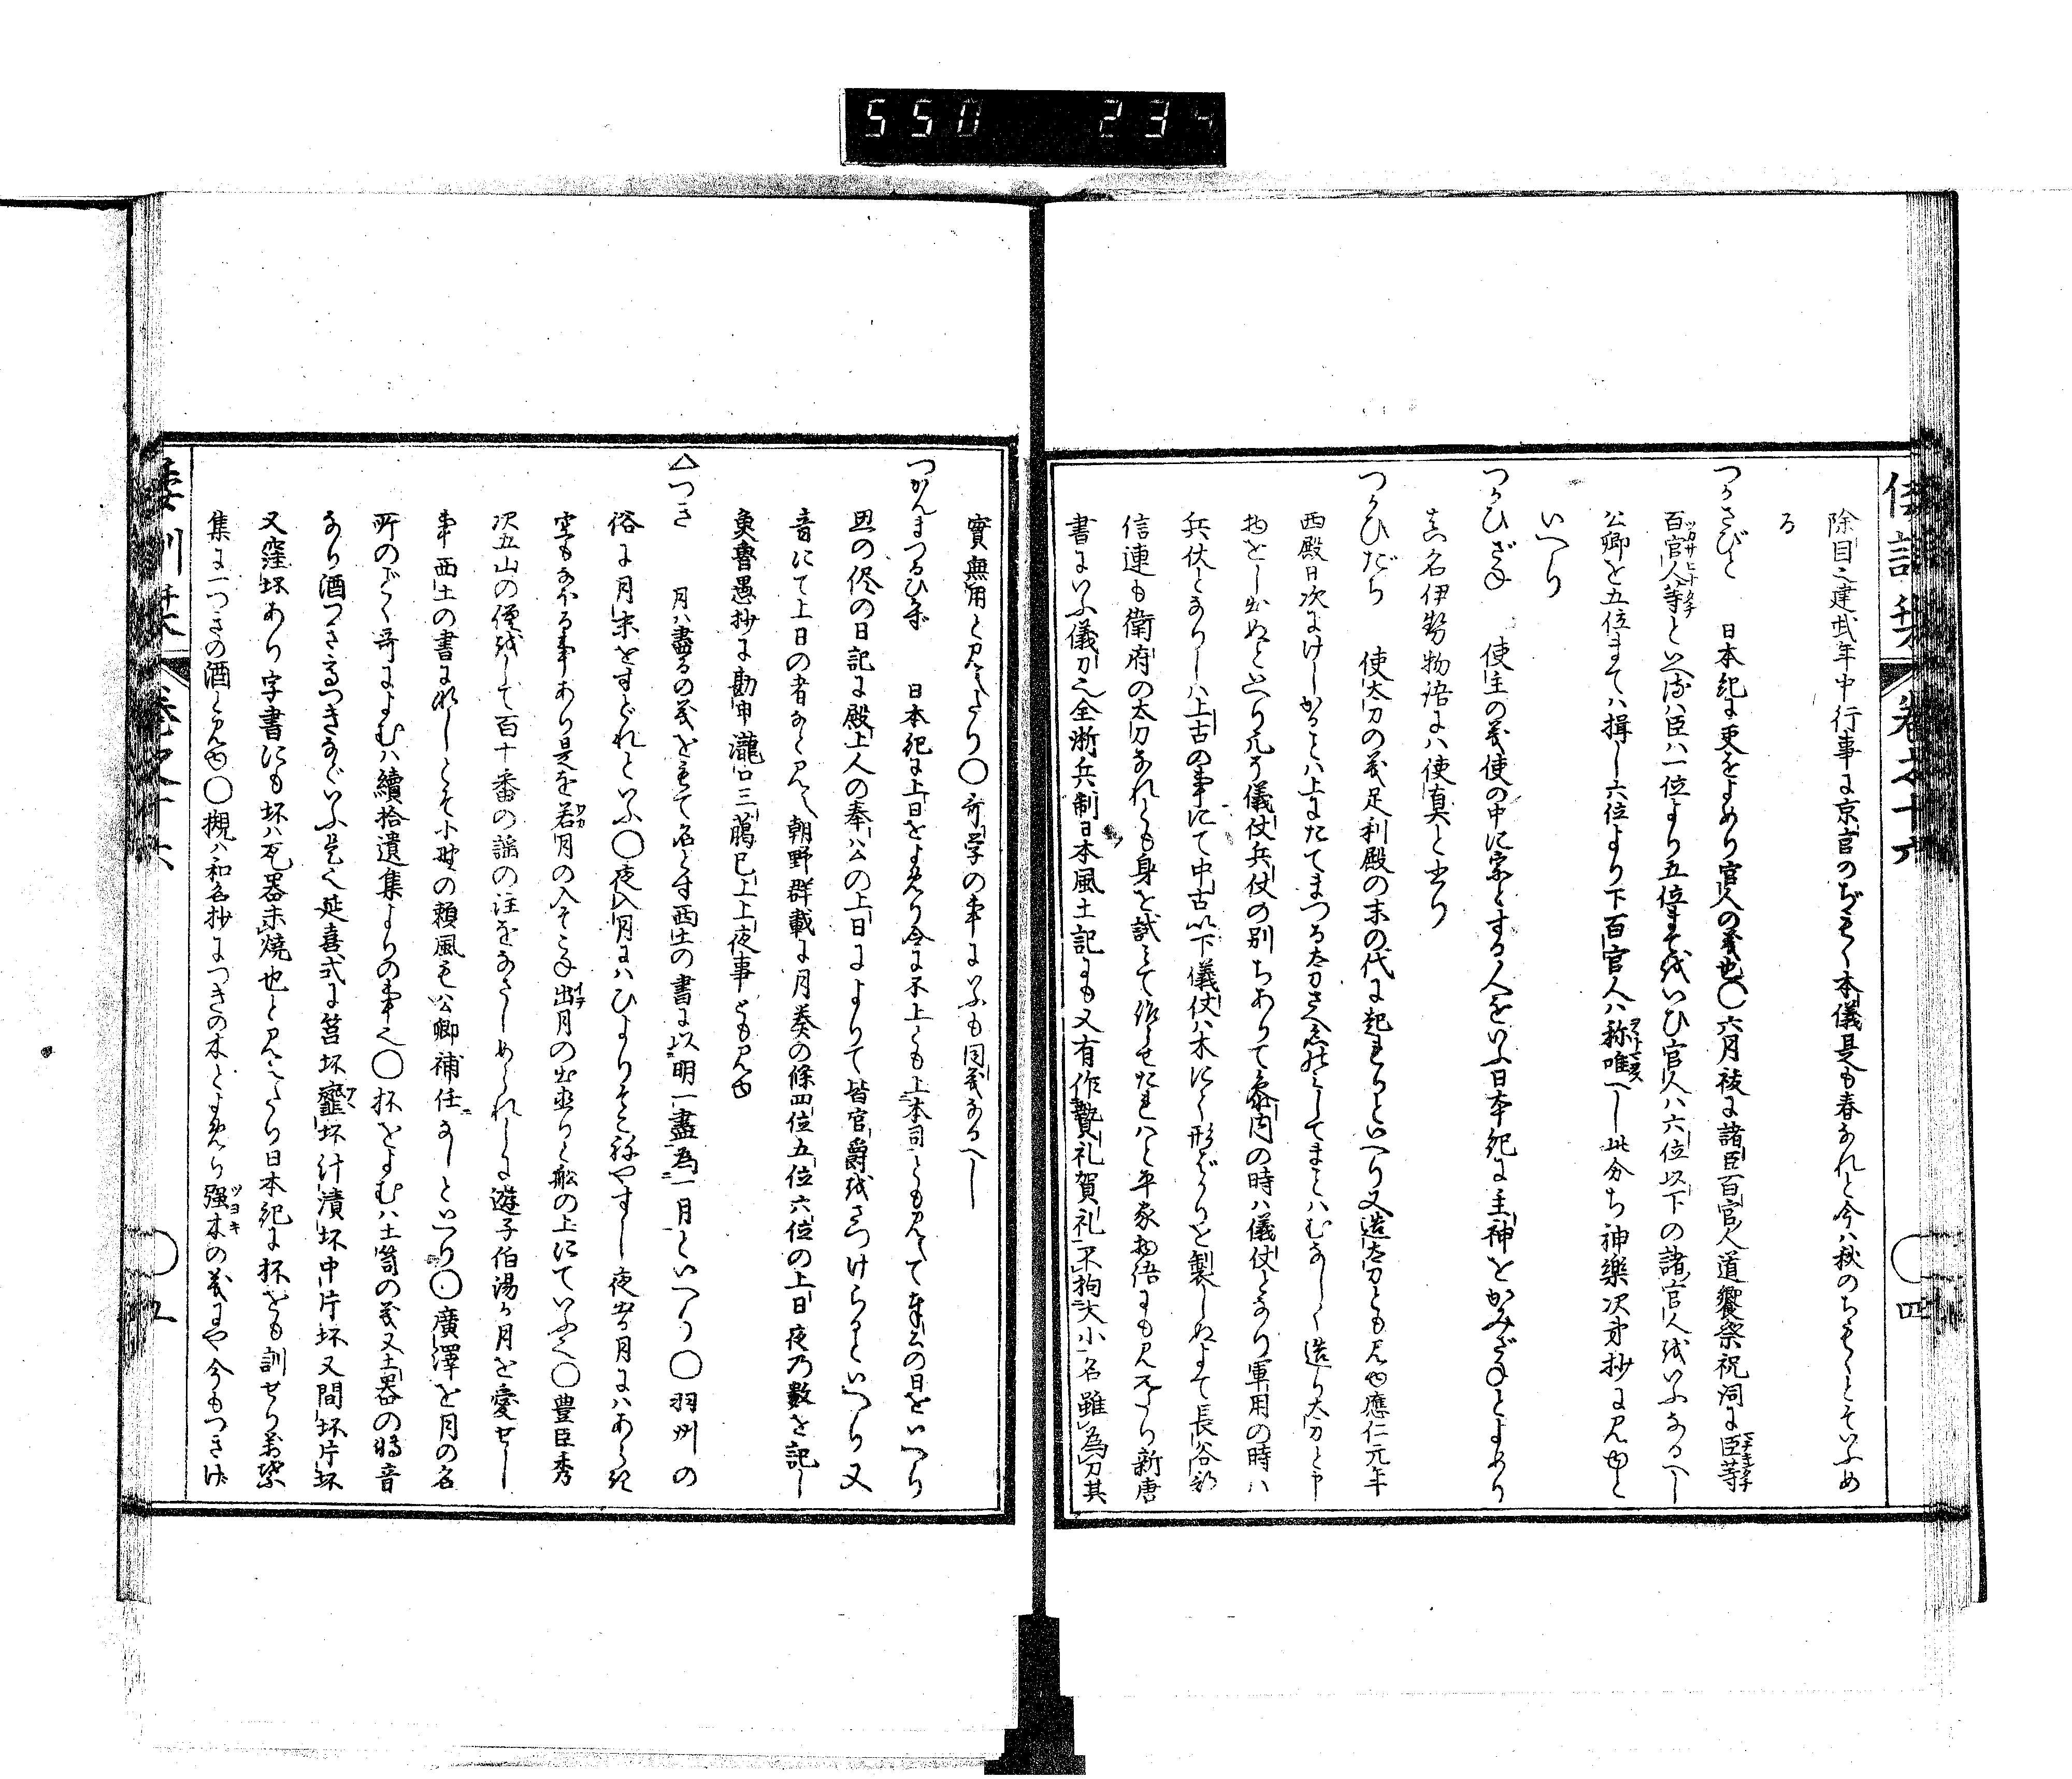 550 234
除目之建武年中行事に京官のぢもく本儀是も春なれと今ハ秋のちもくとそいふめ
る
つかさびと 日本紀に吏をよめり官人の義也〇六月祓に諸臣百官人道饗祭祝詞に臣等
百官人等といへるハ臣ハ一位より五位まてをいひ官人ハ六位以下の諸官人をいふなるへし
公卿を五位まてハ揖し六位より下百官人ハ称唯へし此分ち神樂次第抄に見ゆと
いへり
つかひざね 使主の義使の中に宗とする人をいふ日本紀に主神をかみざねとよめり
真名伊勢物語にハ使真と書り
つかひだち 使太刀の義足利殿の末の代に起れりといへり又造太刀とも見ゆ應仁元年
西殿日次にけしかることハ上にたてまつる太刀さへ してまことハむなしく造り太刀と申
物をし出ぬといへり凡そ儀仗兵仗の別ちありて参内の時ハ儀仗となり軍用の時ハ
兵仗となりしハ上古の事にて中古以下儀仗ハ木にて形ばかりを製しぬよて長谷部
信連も衛府の太刀なれとも身を試みて作らせたれハと平家物語にも見えたり新唐
書にいふ儀刀之全淅兵制日本風土記にも又有作贄礼賀礼不拘大小名雖為刀其
實無用と見えたり〇哥学の事にいふも同義なるへし
つかんまつるひなみ 日本紀に上日をよめり今に不上とも上本司とも見えて奉公の日をいへり
思の侭の日記に殿上人の奉公の上日によりて皆官爵をさつけらるといへり又
音にて上日の者なと見え朝野群載に月奏の條四位五位六位の上日夜乃數を記し
魚魯愚抄に勘申瀧口三臈已上上夜事とも見ゆ
△つき 月ハ盡るの義をもて名とす西土の書に以明一盡為一月といへり〇羽州の
俗に月末をすどれといふ〇夜入月にハひよりそこねやすし夜出る月にハあらき
空もなほる事あり是を若月の入そこね出月の出直りと舩の上にていふ〇豊臣秀
次五山の僧をして百十番の謡の注をなさしめられしに遊子伯陽か月を愛せし
事西土の書になしとそ小野の頼風も公卿補任なしといへり〇廣澤を月の名
所のごく哥によむハ續拾遺集よりの事之〇杯をよむハ土笥の義又土器の略音
なり酒つきたかつきなどいふ是之延喜式に筥坏韲坏汁漬坏中片坏又間坏片坏
又窪坏あり字書にも坏ハ瓦器未燒也と見えたり日本紀に杯をも訓せり万葉
集に一つきの酒と見ゆ〇槻ハ和名抄につきの木とよめり强木の義にや今もつきげ